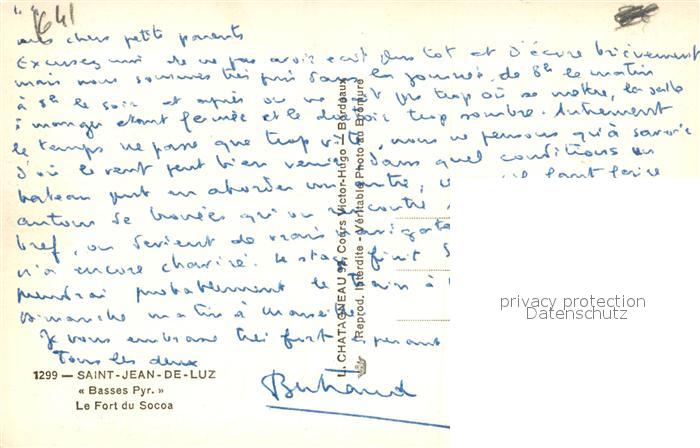 1641
mes chers petits parents
Excusez moi de ne pas avoir écrit plus tot et d'écrire brièvement
mais nous sommes très pris dans la journée de 8h le matin
à 8h le soir et après on ne sait pas trop où se mettre, la salle
à manger étant fermée et le dortoir trop sombre. Autrement
le temps ne passe que trop vite, nous ne pensons qu'à savoir
d'où le vent peut bien venir, dans quel conditions un
bateau peut en aborder un autre, il faut faire
autour de bouées qu'on rencontre
bref, on devient de vrais navigate
n'a encore chaviré. Le stage finit
prendrai probablement le train à
dimanche matin à
Je vous embrasse très fort
Tous les deux
Bertrand
1299 — SAINT-JEAN-DE-LUZ
« Basses Pyr. »
Le Fort du Socoa
L. CHATAGNEAU 97, Cours Victor-Hugo — Bordeaux
Reprod. Interdite - Véritable Photo au Bromure
privacy protection
Datenschutz